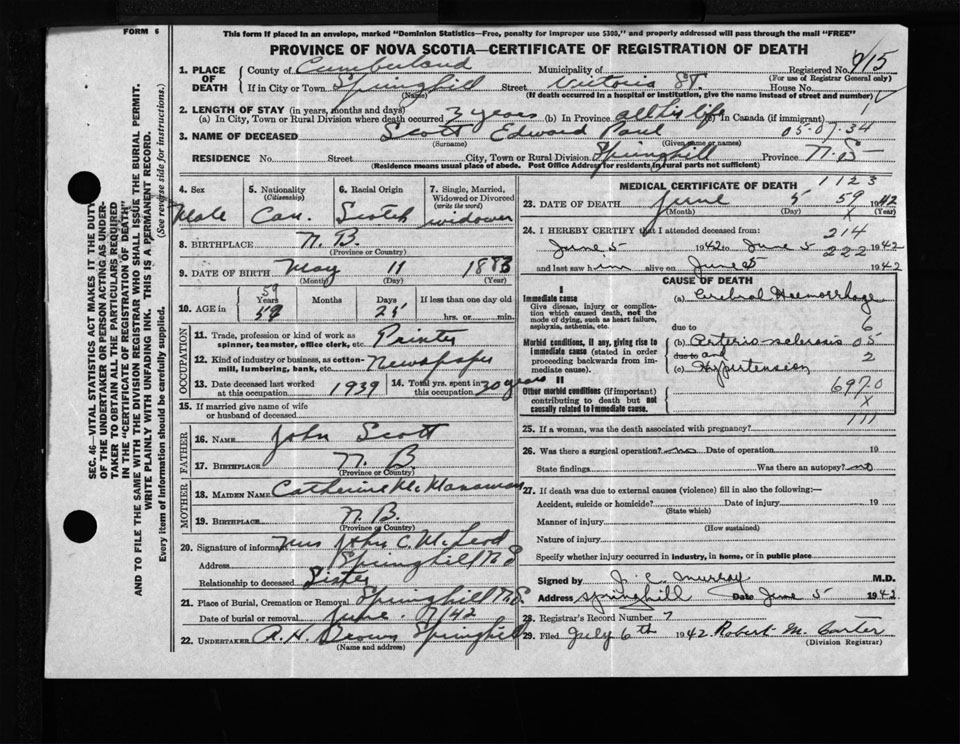 FORM 6
This form if placed in an envelope, marked "Dominion Statistics—Free, penalty for improper use $300," and properly addressed will pass through the mail "FREE"
PROVINCE OF NOVA SCOTIA—CERTIFICATE OF REGISTRATION OF DEATH
1. PLACE OF DEATH
County of Cumberland Municipality of Registered No. 915
(For use of Registrar General only)
If in City or Town Springhill Street Victoria St. House No.
(Name) (If death occurred in a hospital or institution, give the name instead of street and number)
2. LENGTH OF STAY (in years, months and days)
(a) In City, Town or Rural Division where death occurred 3 years (b) In Province all his life (c) In Canada (if immigrant)
05-07-34
3. NAME OF DECEASED Scott Edward Paul
(Surname) (Given name or names)
RESIDENCE No. Street City, Town or Rural Division Springhill Province N.S.
(Residence means usual place of abode. Post Office Address for residents in rural parts not sufficient)
4. Sex
Male
5. Nationality
(Citizenship)
Can.
6. Racial Origin
Scotch
7. Single, Married, Widowed or Divorced
(write the word)
widower
8. BIRTHPLACE N. B.
(Province or Country)
9. DATE OF BIRTH May 11 1883
(Month) (Day) (Year)
10. AGE in
59
Years Months Days If less than one day old
25 hrs. or min.
OCCUPATION
11. Trade, profession or kind of work as spinner, teamster, office clerk, etc. Printer
12. Kind of industry or business, as cotton-mill, lumbering, bank, etc. Newspaper
13. Date deceased last worked at this occupation 1939
14. Total yrs. spent in this occupation 30 years
15. If married give name of wife or husband of deceased
FATHER
16. NAME John Scott
17. BIRTHPLACE N. B.
(Province or Country)
MOTHER
18. MAIDEN NAME Catherine
19. BIRTHPLACE N. B.
(Province or Country)
20. Signature of informant Mrs John C. McLeod
Address Springhill N S
Relationship to deceased Sister
21. Place of Burial, Cremation or Removal Springhill N.S.
Date of burial or removal June 7/42
22. UNDERTAKER A. H. Brown Springhill
(Name and address)
MEDICAL CERTIFICATE OF DEATH
1123
23. DATE OF DEATH June 5 59 1942
(Month) (Day) X (Year)
24. I HEREBY CERTIFY that I attended deceased from: 214
June 5 1942 to June 5 222 1942
and last saw him alive on June 5 1942
CAUSE OF DEATH
I
Immediate cause
Give disease, injury or complication which caused death, not the mode of dying, such as heart failure, asphyxia, asthenia, etc.
(a) Cerebral Haemorrhage
6
due to
Morbid conditions, if any, giving rise to immediate cause (stated in order proceeding backwards from immediate cause).
(b) Arterio-sclerosis 05
due to and 2
(c) Hypertension
II
Other morbid conditions (if important) contributing to death but not causally related to immediate cause.
6970
X
111
25. If a woman, was the death associated with pregnancy?
26. Was there a surgical operation? no Date of operation 19
State findings Was there an autopsy? no
27. If death was due to external causes (violence) fill in also the following:—
Accident, suicide or homicide? Date of injury 19
(State which)
Manner of injury
(How sustained)
Nature of injury
Specify whether injury occurred in industry, in home, or in public place
Signed by J. C. Murray M.D.
Address Springhill Date June 5 1942
28. Registrar's Record Number 7
29. Filed July 6th 1942. Robert M. Carter
(Division Registrar)
SEC. 46—VITAL STATISTICS ACT MAKES IT THE DUTY
OF THE UNDERTAKER OR PERSON ACTING AS UNDER-
TAKER TO OBTAIN ALL THE PARTICULARS REQUIRED
IN THE "CERTIFICATE OF REGISTRATION OF DEATH"
AND TO FILE THE SAME WITH THE DIVISION REGISTRAR WHO SHALL ISSUE THE BURIAL PERMIT.
WRITE PLAINLY WITH UNFADING INK. THIS IS A PERMANENT RECORD.
Every item of Information should be carefully supplied. (See reverse side for instructions.)